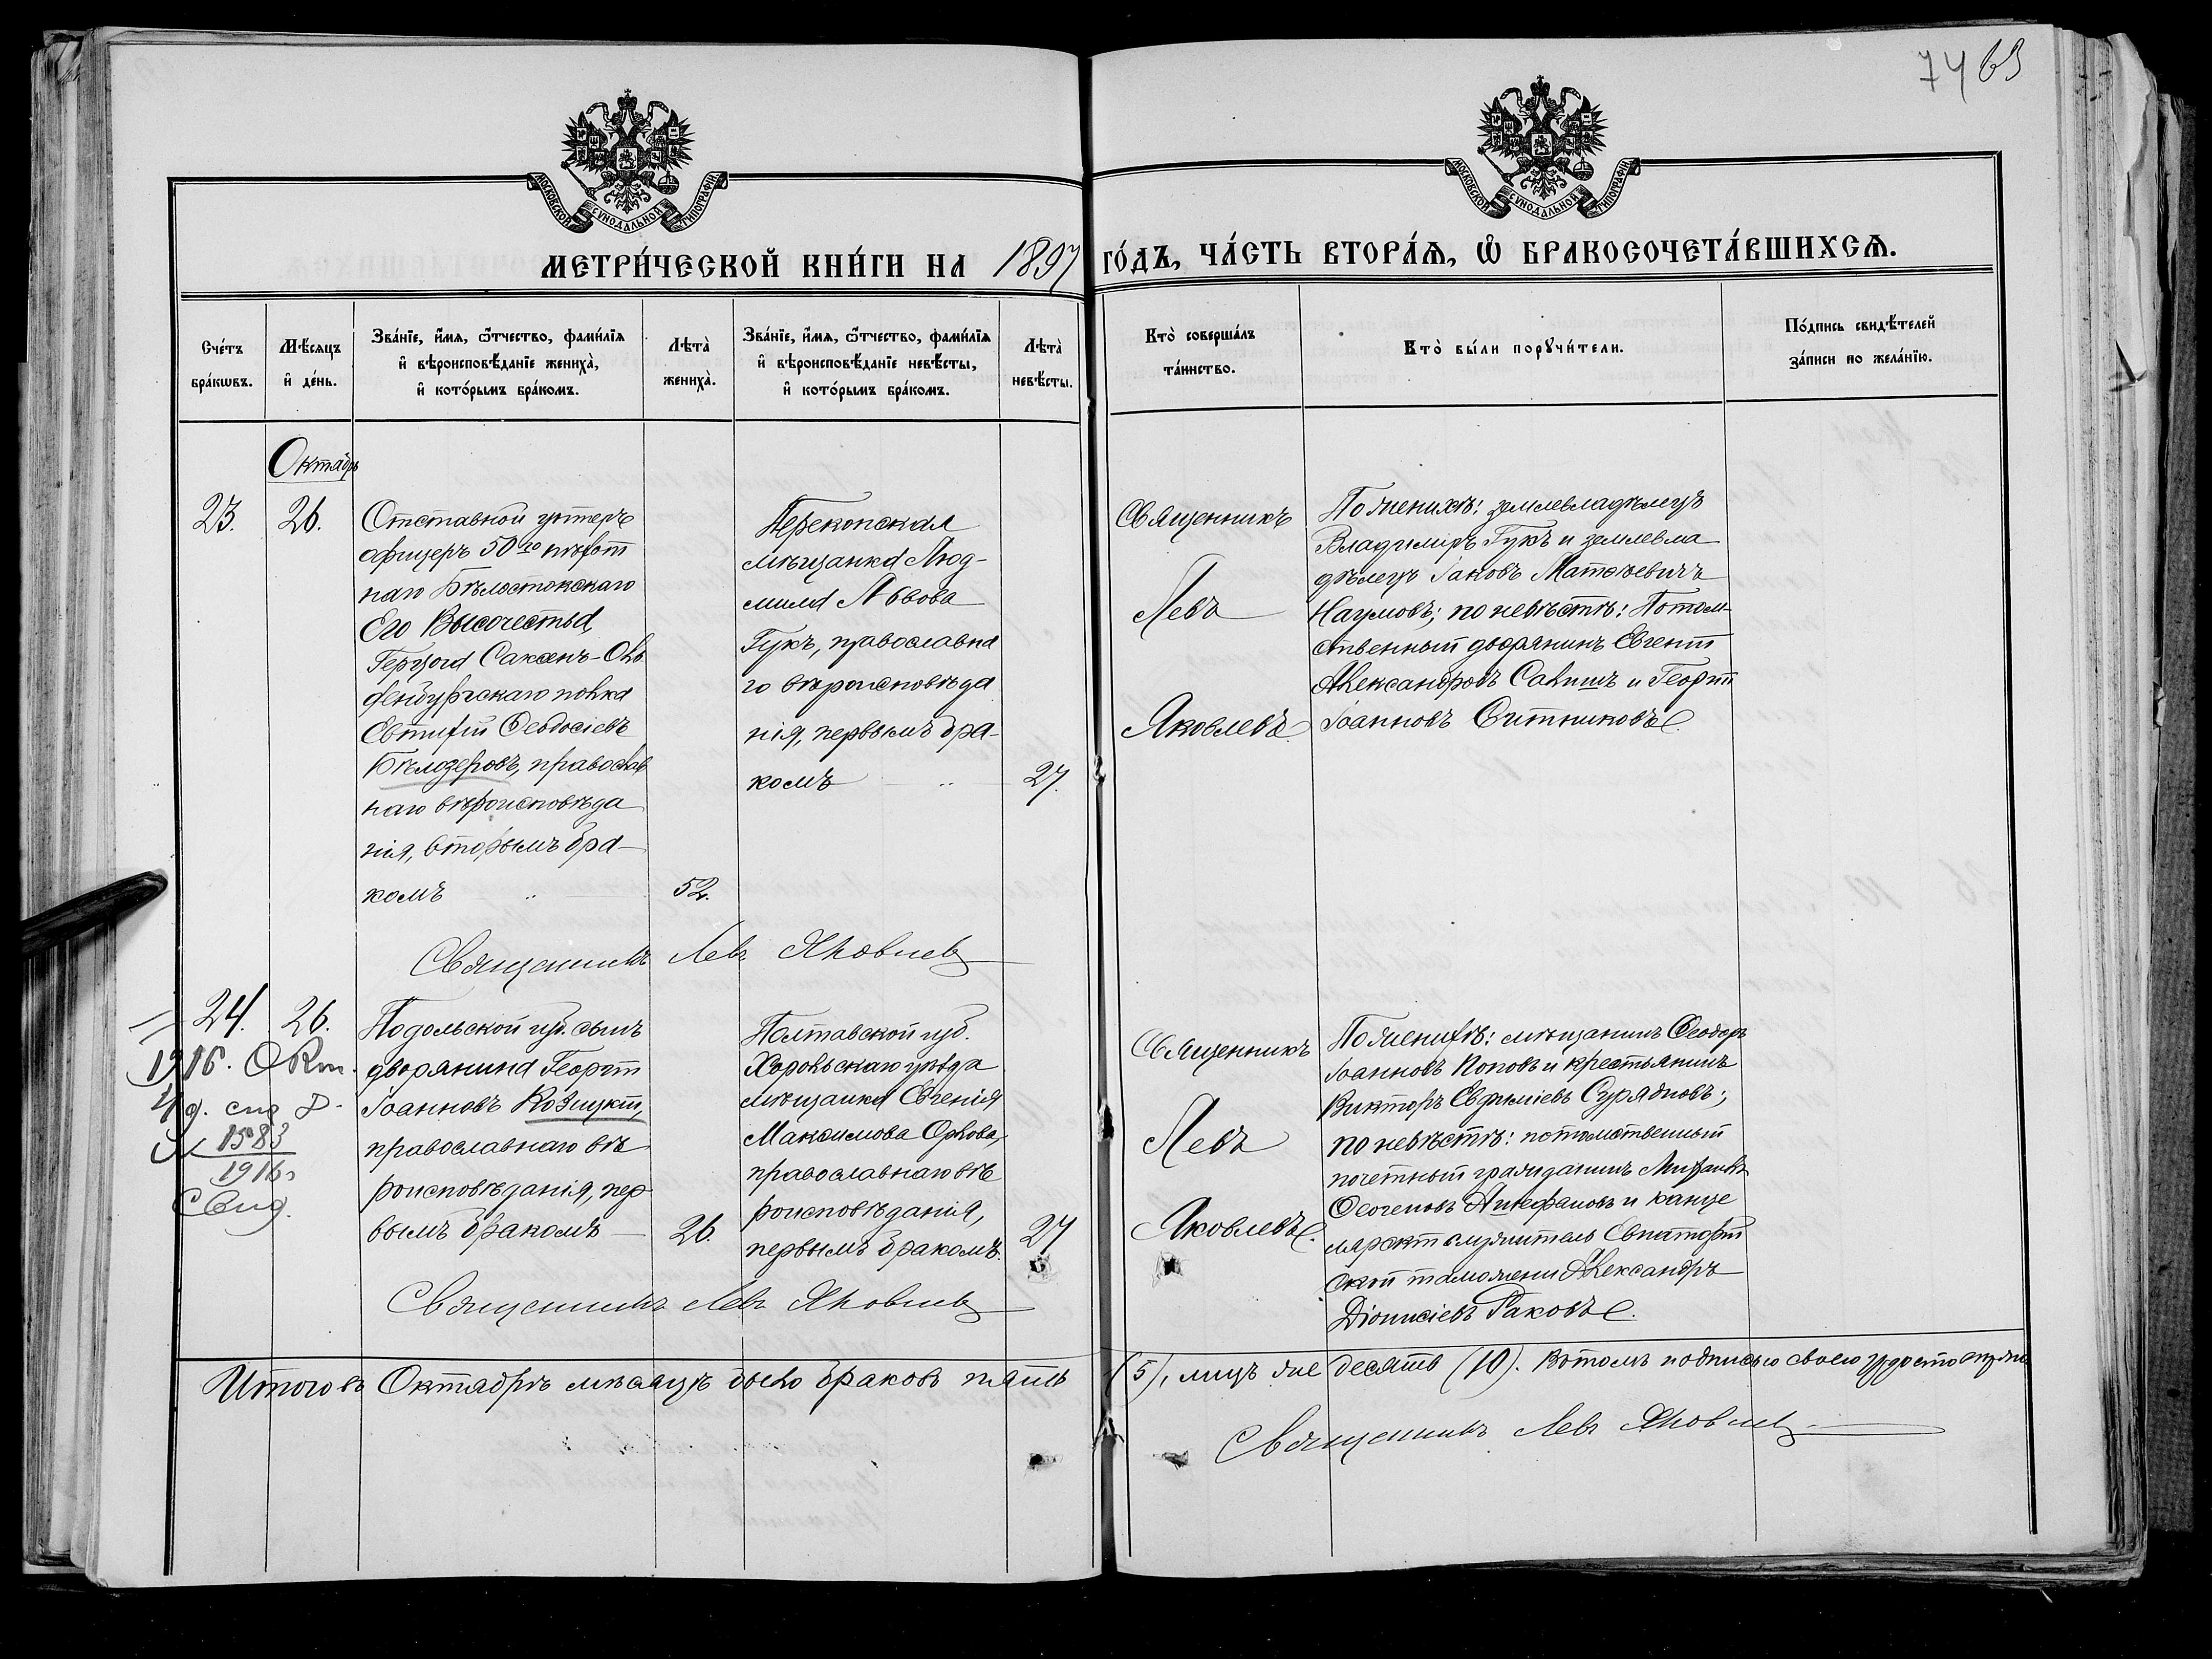 74 63
МОСКОВСКОЙ СѴНОДАЛЬНОЙ ТИПОГРАФІИ
МОСКОВСКОЙ СѴНОДАЛЬНОЙ ТИПОГРАФІИ
МЕТРИ́ЧЕСКОЙ КНИ́ГИ НА 1897 ГО́ДЪ, ЧА́СТЬ ВТОРА́Ѧ, Ѽ БРАКОСОЧЕТА́ВШИХСѦ.
Сче́тъ
бра́кѡвъ.
Мѣ́сяцъ
и҆ де́нь.
Зва́нїе, и҆́мя, ѻ҆́тчество, фами́лїя
и҆ вѣроисповѣ́данїе жениха̀,
и҆ кото́рымъ бра́комъ.
Лѣта̀
жениха̀.
Зва́нїе, и҆́мя, ѻ҆́тчество, фами́лїя
и҆ вѣроисповѣ́данїе невѣ́сты,
и҆ кото́рымъ бра́комъ.
Лѣта̀
невѣ́сты.
Кто̀ соверша́лъ
та́инство.
Кто̀ бы́ли порꙋчи́тели.
По́дпись свидѣ́телей
за́писи по жела́нїю.
Октябрь
23.
26.
Отставной унтеръ
офицеръ 50го пѣхот
наго Бѣлостокскаго
Его Высочества,
Герцога Саксенъ-Оль
денбургскаго полка
Евтихій Ѳеодосіевъ
Бѣлозеровъ, православ
наго вѣроисповѣда
нія, вторымъ бра-
комъ
52.
Перекопская
мѣщанка Люд-
мила Львова
Гукъ, православна
го вѣроисповѣда
нія, первымъ бра-
комъ
27.
Священникъ
Левъ
Яковлевъ
По женихѣ: землевладѣлецъ
Владиміръ Гукъ и землевла
дѣлецъ Іаковъ Матѳѣевичъ
Наумовъ; по невѣстѣ: Потом-
ственный дворянинъ Евгеній
Александровъ Савишъ и Георгій
Іоанновъ Ситниковъ.
Священникъ Левъ Яковлевъ
24.
26.
1916. Окт.
1583
1916
Свид.
Подольской губ. сынъ
дворянина Георгій
Іоанновъ Козицкій,
православнаго вѣ
роисповѣданія, пер
вымъ бракомъ
26.
Полтавской губ.
Хорольскаго уѣзда
мѣщанка Евгенія
Максимова Орлова,
православнаго вѣ
роисповѣданія,
первымъ бракомъ.
27
Священникъ
Левъ
Яковлевъ.
По женихѣ: мѣщанинъ Ѳеодоръ
Іоанновъ Поповъ и крестьянинъ
Викторъ Евфиміевъ Сурядновъ;
по невѣстѣ: потомственный
почетный гражданинъ Михаилъ
Ѳеогеновъ и канце
лярскій служитель Евпаторій
ской таможни Александръ
Діонисіевъ Раковъ.
Священникъ Левъ Яковлевъ
Итого въ Октябрѣ мѣсяцѣ было браковъ пять (5), лицъ же десять (10). Въ томъ подписью своею удостовѣряю
Священникъ Левъ Яковлевъ